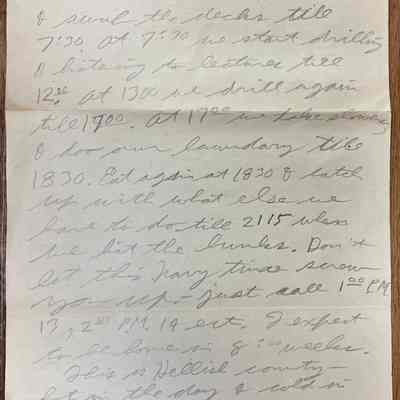 & swab the decks till
7:30. At 7:30 we start drilling
& listening to lectures till
12:00. At 1300 we drill again
till 1700. At 1700 we take showers
& doo our laundary till
1830. Eat again at 1830 & catch
up with what else we
have to do till 2115 when
we hit the bunks. Don't
let this Navy time screw
you up - just call 1:00 P.M.
13, 2:00 P.M. 14 ect. I expect
to be home in 8 weeks.
This is Hellish country -
hot in the day & cold in